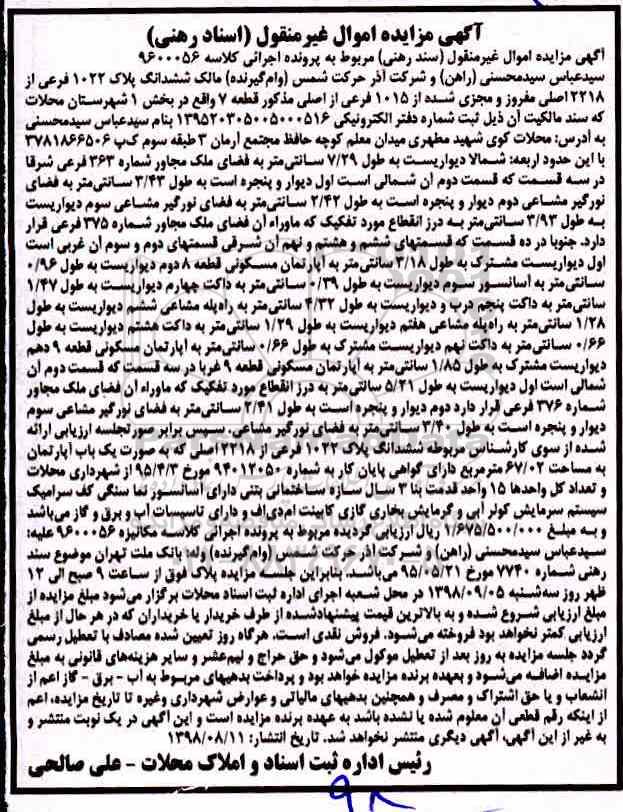 آگهی مزایده اموال غیرمنقول (اسناد رهنی)
آگهی مزایده اموال غیرمنقول (سند رهنی) مربوط به پرونده اجرائی کلاسه ۹۶۰۰۰۵۶
سیدعباس سیدمحسنی (راهن) و شرکت آذر حرکت شمس (وام‌گیرنده) مالک ششدانگ پلاک ۱۰۲۲ فرعی از
۲۲۱۸ اصلی مفروز و مجزی شده از ۱۰۱۵ فرعی از اصلی مذکور قطعه ۷ واقع در بخش ۱ شهرستان محلات
که سند مالکیت آن ذیل ثبت شماره دفتر الکترونیکی ۱۳۹۵۲۰۳۰۵۰۰۵۰۰۰۵۱۶ بنام سیدعباس سیدمحسنی
به آدرس: محلات کوی شهید مطهری میدان معلم کوچه حافظ مجتمع آرمان ۳ طبقه سوم ک‌پ ۳۷۸۱۸۶۶۵۰۶
با این حدود اربعه: شمالا دیواریست به طول ۷/۲۹ سانتی‌متر به فضای ملک مجاور شماره ۳۶۳ فرعی شرقا
در سه قسمت که قسمت دوم آن شمالی است اول دیوار و پنجره است به طول ۳/۴۳ سانتی‌متر به فضای
نورگیر مشاعی دوم دیوار و پنجره است به طول ۲/۴۲ سانتی‌متر به فضای نورگیر مشاعی سوم دیواریست
به طول ۳/۹۳ سانتی‌متر به درز انقطاع مورد تفکیک که ماوراء آن فضای ملک مجاور شماره ۳۷۵ فرعی قرار
دارد. جنوبا در ده قسمت که قسمتهای ششم و هشتم و نهم آن شرقی قسمتهای دوم و سوم آن غربی است
اول دیواریست مشترک به طول ۳/۱۸ سانتی‌متر به آپارتمان مسکونی قطعه ۸ دوم دیواریست به طول ۰/۹۶
سانتی‌متر به آسانسور سوم دیواریست به طول ۰/۳۹ سانتی‌متر به داکت چهارم دیواریست به طول ۱/۴۷
سانتی‌متر به داکت پنجم درب و دیواریست به طول ۴/۳۲ سانتی‌متر به راه‌پله مشاعی ششم دیواریست به طول
۱/۲۸ سانتی‌متر به راه‌پله مشاعی هفتم دیواریست به طول ۱/۲۹ سانتی‌متر به داکت هشتم دیواریست به طول
۰/۶۶ سانتی‌متر به داکت نهم دیواریست مشترک به طول ۰/۶۶ سانتی‌متر به آپارتمان مسکونی قطعه ۹ دهم
دیواریست مشترک به طول ۱/۸۵ سانتی‌متر به آپارتمان مسکونی قطعه ۹ غربا در سه قسمت که قسمت دوم آن
شمالی است اول دیواریست به طول ۵/۲۱ سانتی‌متر به درز انقطاع مورد تفکیک که ماوراء آن فضای ملک مجاور
شماره ۳۷۶ فرعی قرار دارد دوم دیوار و پنجره است به طول ۲/۴۱ سانتی‌متر به فضای نورگیر مشاعی سوم
دیوار و پنجره است به طول ۳/۴۰ سانتی‌متر به فضای نورگیر مشاعی. سپس برابر صورتجلسه ارزیابی ارائه
شده از سوی کارشناس مربوطه ششدانگ پلاک ۱۰۲۲ فرعی از ۲۲۱۸ اصلی که به صورت یک باب آپارتمان
به مساحت ۶۷/۰۲ مترمربع دارای گواهی پایان کار به شماره ۹۴۰۱۲۰۵۰ مورخ ۹۵/۴/۳ از شهرداری محلات
و تعداد کل واحدها ۱۵ واحد قدمت بنا ۳ سال سازه ساختمانی بتنی دارای آسانسور نما سنگی کف سرامیک
سیستم سرمایش کولر آبی و گرمایش بخاری گازی کابینت ام‌دی‌اف و دارای تاسیسات آب و برق و گاز می‌باشد
و به مبلغ ۱/۶۷۵/۵۰۰/۰۰۰ ریال ارزیابی گردیده مربوط به پرونده اجرایی کلاسه مکانیزه ۹۶۰۰۰۵۶ علیه:
سیدعباس سیدمحسنی (راهن) و شرکت آذر حرکت شمس (وام‌گیرنده) و له: بانک ملت تهران موضوع سند
رهنی شماره ۷۷۴۰ مورخ ۹۵/۰۵/۲۱ می‌باشد. بنابراین جلسه مزایده پلاک فوق از ساعت ۹ صبح الی ۱۲
ظهر روز سه‌شنبه ۱۳۹۸/۰۹/۰۵ در محل شعبه اجرای اداره ثبت اسناد محلات برگزار می‌شود مبلغ مزایده از
مبلغ ارزیابی شروع شده و به بالاترین قیمت پیشنهادشده از طرف خریدار یا خریداران که در هر حال از مبلغ
ارزیابی کمتر نخواهد بود فروخته می‌شود. فروش نقدی است. هرگاه روز تعیین شده مصادف با تعطیل رسمی
گردد جلسه مزایده به روز بعد از تعطیل موکول می‌شود و حق حراج و نیم‌عشر و سایر هزینه‌های قانونی به مبلغ
مزایده اضافه می‌شود و بعهده برنده مزایده خواهد بود و پرداخت بدهیهای مربوط به آب - برق - گاز اعم از
انشعاب و یا حق اشتراک و مصرف و همچنین بدهیهای مالیاتی و عوارض شهرداری وغیره تا تاریخ مزایده، اعم
از اینکه رقم قطعی آن معلوم شده یا نشده باشد به عهده برنده مزایده است و این آگهی در یک نوبت منتشر و
به غیر از این آگهی، آگهی دیگری منتشر نخواهد شد. تاریخ انتشار: ۱۳۹۸/۰۸/۱۱
رئیس اداره ثبت اسناد و املاک محلات - علی صالحی